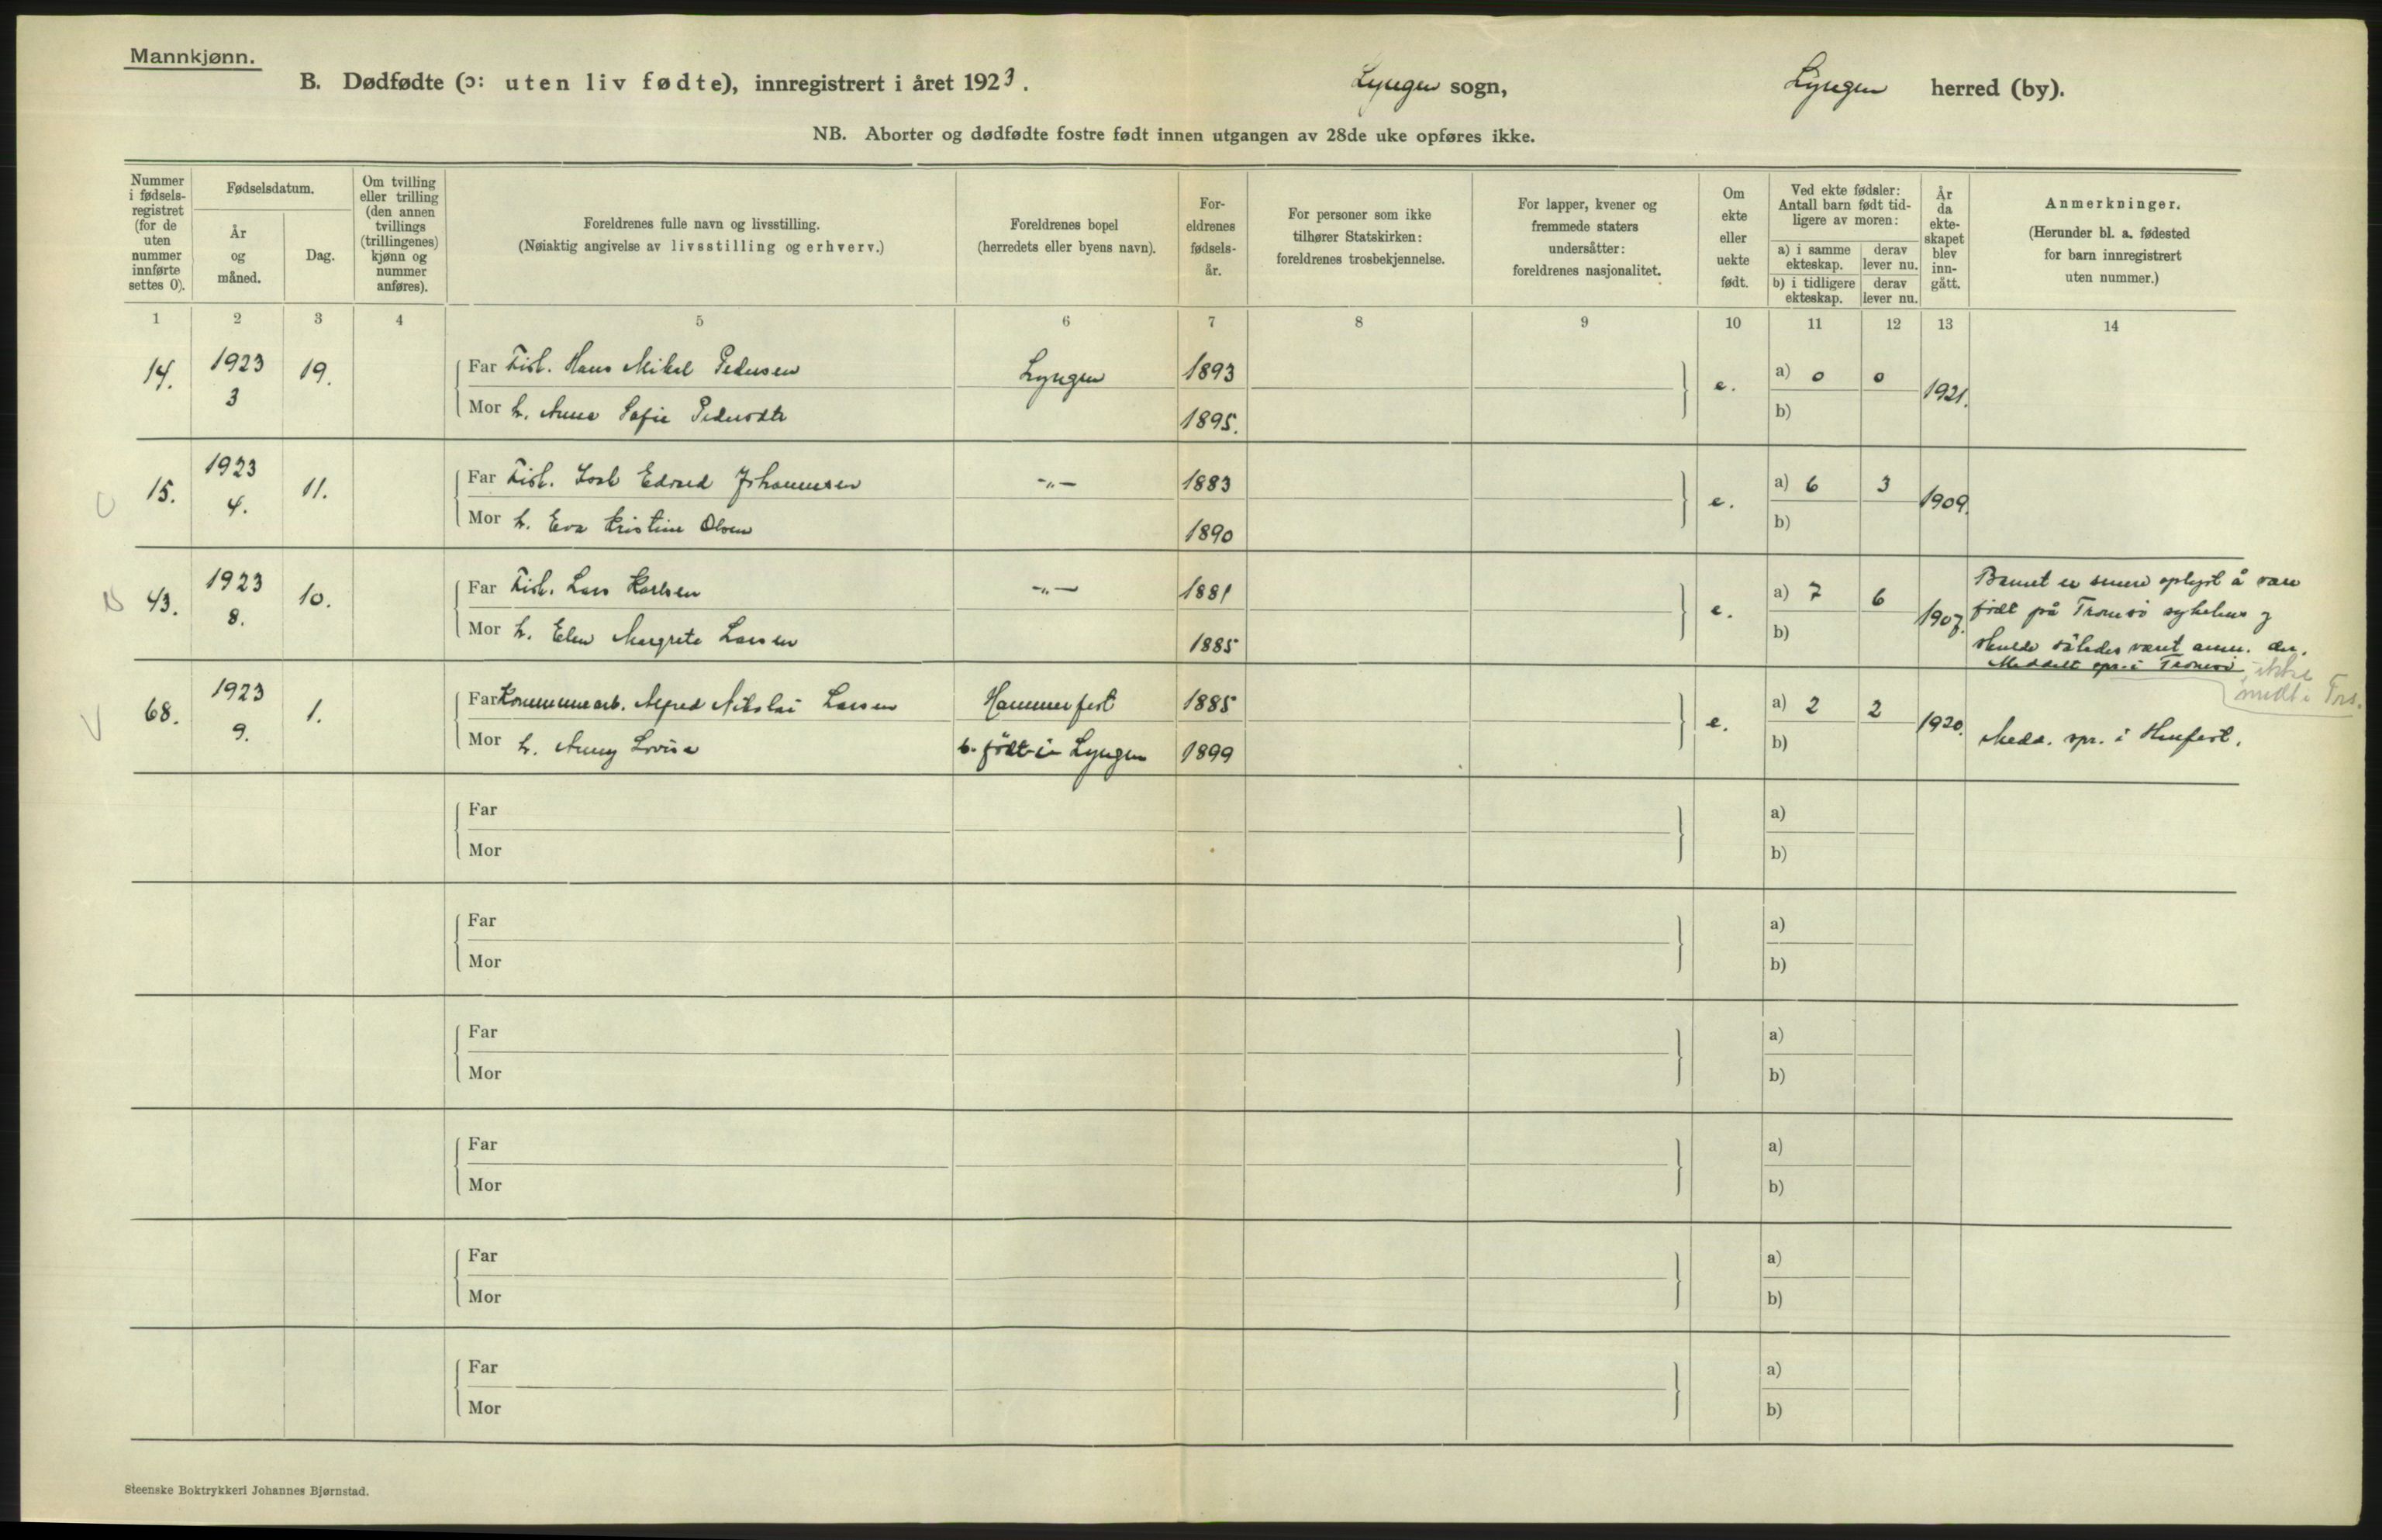 Mannkjønn.
B. Dødfødte (ɔ: uten liv fødte), innregistrert i året 1923. Lyngen sogn, Lyngen herred (by).
NB. Aborter og dødfødte fostre født innen utgangen av 28de uke opføres ikke.
Nummer i fødsels-registret (for de uten nummer innførte settes 0).
Fødselsdatum.
År og måned.
Dag.
Om tvilling eller trilling (den annen tvillings (trillingenes) kjønn og nummer anføres).
Foreldrenes fulle navn og livsstilling.
(Nøiaktig angivelse av livsstilling og erhverv.)
Foreldrenes bopel
(herredets eller byens navn).
For-eldrenes fødsels-år.
For personer som ikke tilhører Statskirken: foreldrenes trosbekjennelse.
For lapper, kvener og fremmede staters undersåtter: foreldrenes nasjonalitet.
Om ekte eller uekte født.
Ved ekte fødsler: Antall barn født tid-ligere av moren:
a) i samme ekteskap. derav lever nu.
b) i tidligere ekteskap. derav lever nu.
År da ekte-skapet blev inn-gått.
Anmerkninger.
(Herunder bl. a. fødested for barn innregistrert uten nummer.)
1 2 3 4 5 6 7 8 9 10 11 12 13 14
14. 1923 3 19. Far Fisk. Hans Mikal Pedersen Lyngen 1893 e. a) 0 0 1921.
Mor h. Anna Sofie Pedersdtr 1895. b)
15. 1923 4. 11. Far Fisk. Edvard Johannesen -"- 1883 e. a) 6 3 1909.
Mor h. Eva Kristine Olsen 1890 b)
43. 1923 8. 10. Far Fisk. Lars Karlsen -"- 1881 e. a) 7 6 1907. Barnet er senere oplyst å være
født på Tromsø sykehus og
Mor h. Elen Margrete Larsen 1885 b) skulde således vært anm. der.
Meddelt spr. i Tromsø, ikke
medt i Trs.
68. 1923 9. 1. Far Kommunearb. Alfred Nikolai Larsen Hammerfest 1885 e. a) 2 2 1920. Medd. spr. i Hmfest.
Mor h. Anny Lovise b. født i Lyngen 1899 b)
Far a)
Mor b)
Far a)
Mor b)
Far a)
Mor b)
Far a)
Mor b)
Far a)
Mor b)
Far a)
Mor b)
Steenske Boktrykkeri Johannes Bjørnstad.